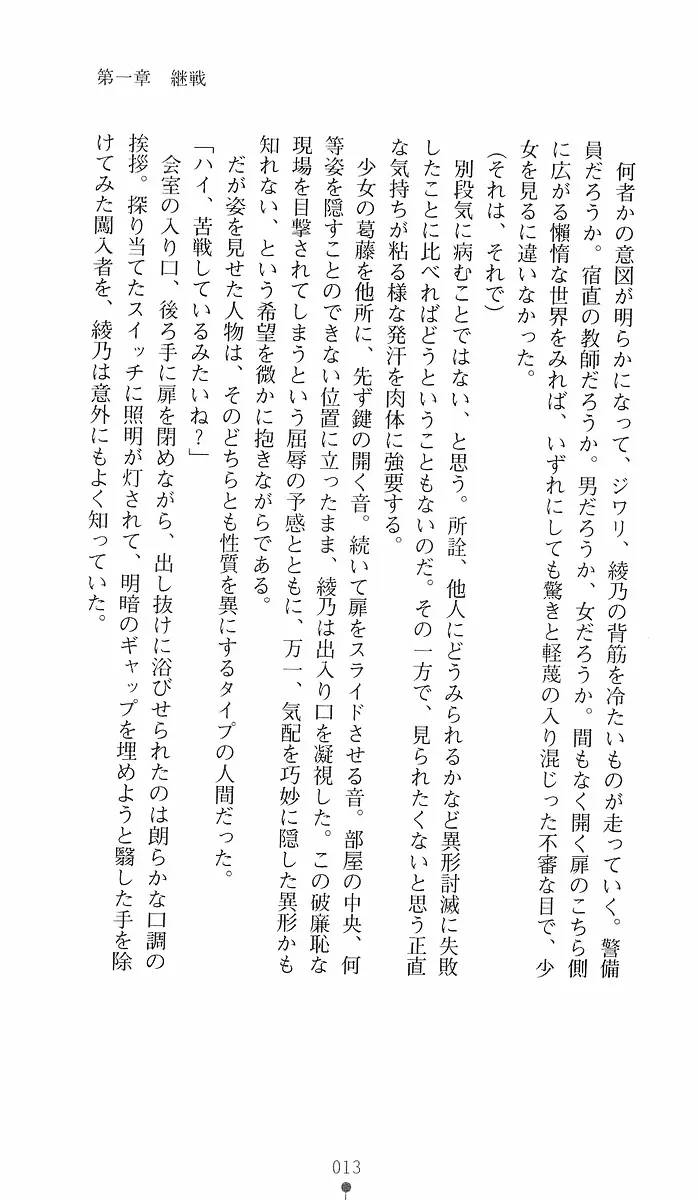 第一章　継戦
何者かの意図が明らかになって、ジワリ、綾乃の背筋を冷たいものが走っていく。警備
員だろうか。宿直の教師だろうか。男だろうか、女だろうか。間もなく開く扉のこちら側
に広がる懶惰な世界をみれば、いずれにしても驚きと軽蔑の入り混じった不審な目で、少
女を見るに違いなかった。
（それは、それで）
別段気に病むことではない、と思う。所詮、他人にどうみられるかなど異形討滅に失敗
したことに比べればどうということもないのだ。その一方で、見られたくないと思う正直
な気持ちが粘る様な発汗を肉体に強要する。
少女の葛藤を他所に、先ず鍵の開く音。続いて扉をスライドさせる音。部屋の中央、何
等姿を隠すことのできない位置に立ったまま、綾乃は出入り口を凝視した。この破廉恥な
現場を目撃されてしまうという屈辱の予感とともに、万一、気配を巧妙に隠した異形かも
知れない、という希望を微かに抱きながらである。
だが姿を見せた人物は、そのどちらとも性質を異にするタイプの人間だった。
「ハイ、苦戦しているみたいね？」
会室の入り口、後ろ手に扉を閉めながら、出し抜けに浴びせられたのは朗らかな口調の
挨拶。探り当てたスイッチに照明が灯されて、明暗のギャップを埋めようと翳した手を除
けてみた闖入者を、綾乃は意外にもよく知っていた。
013